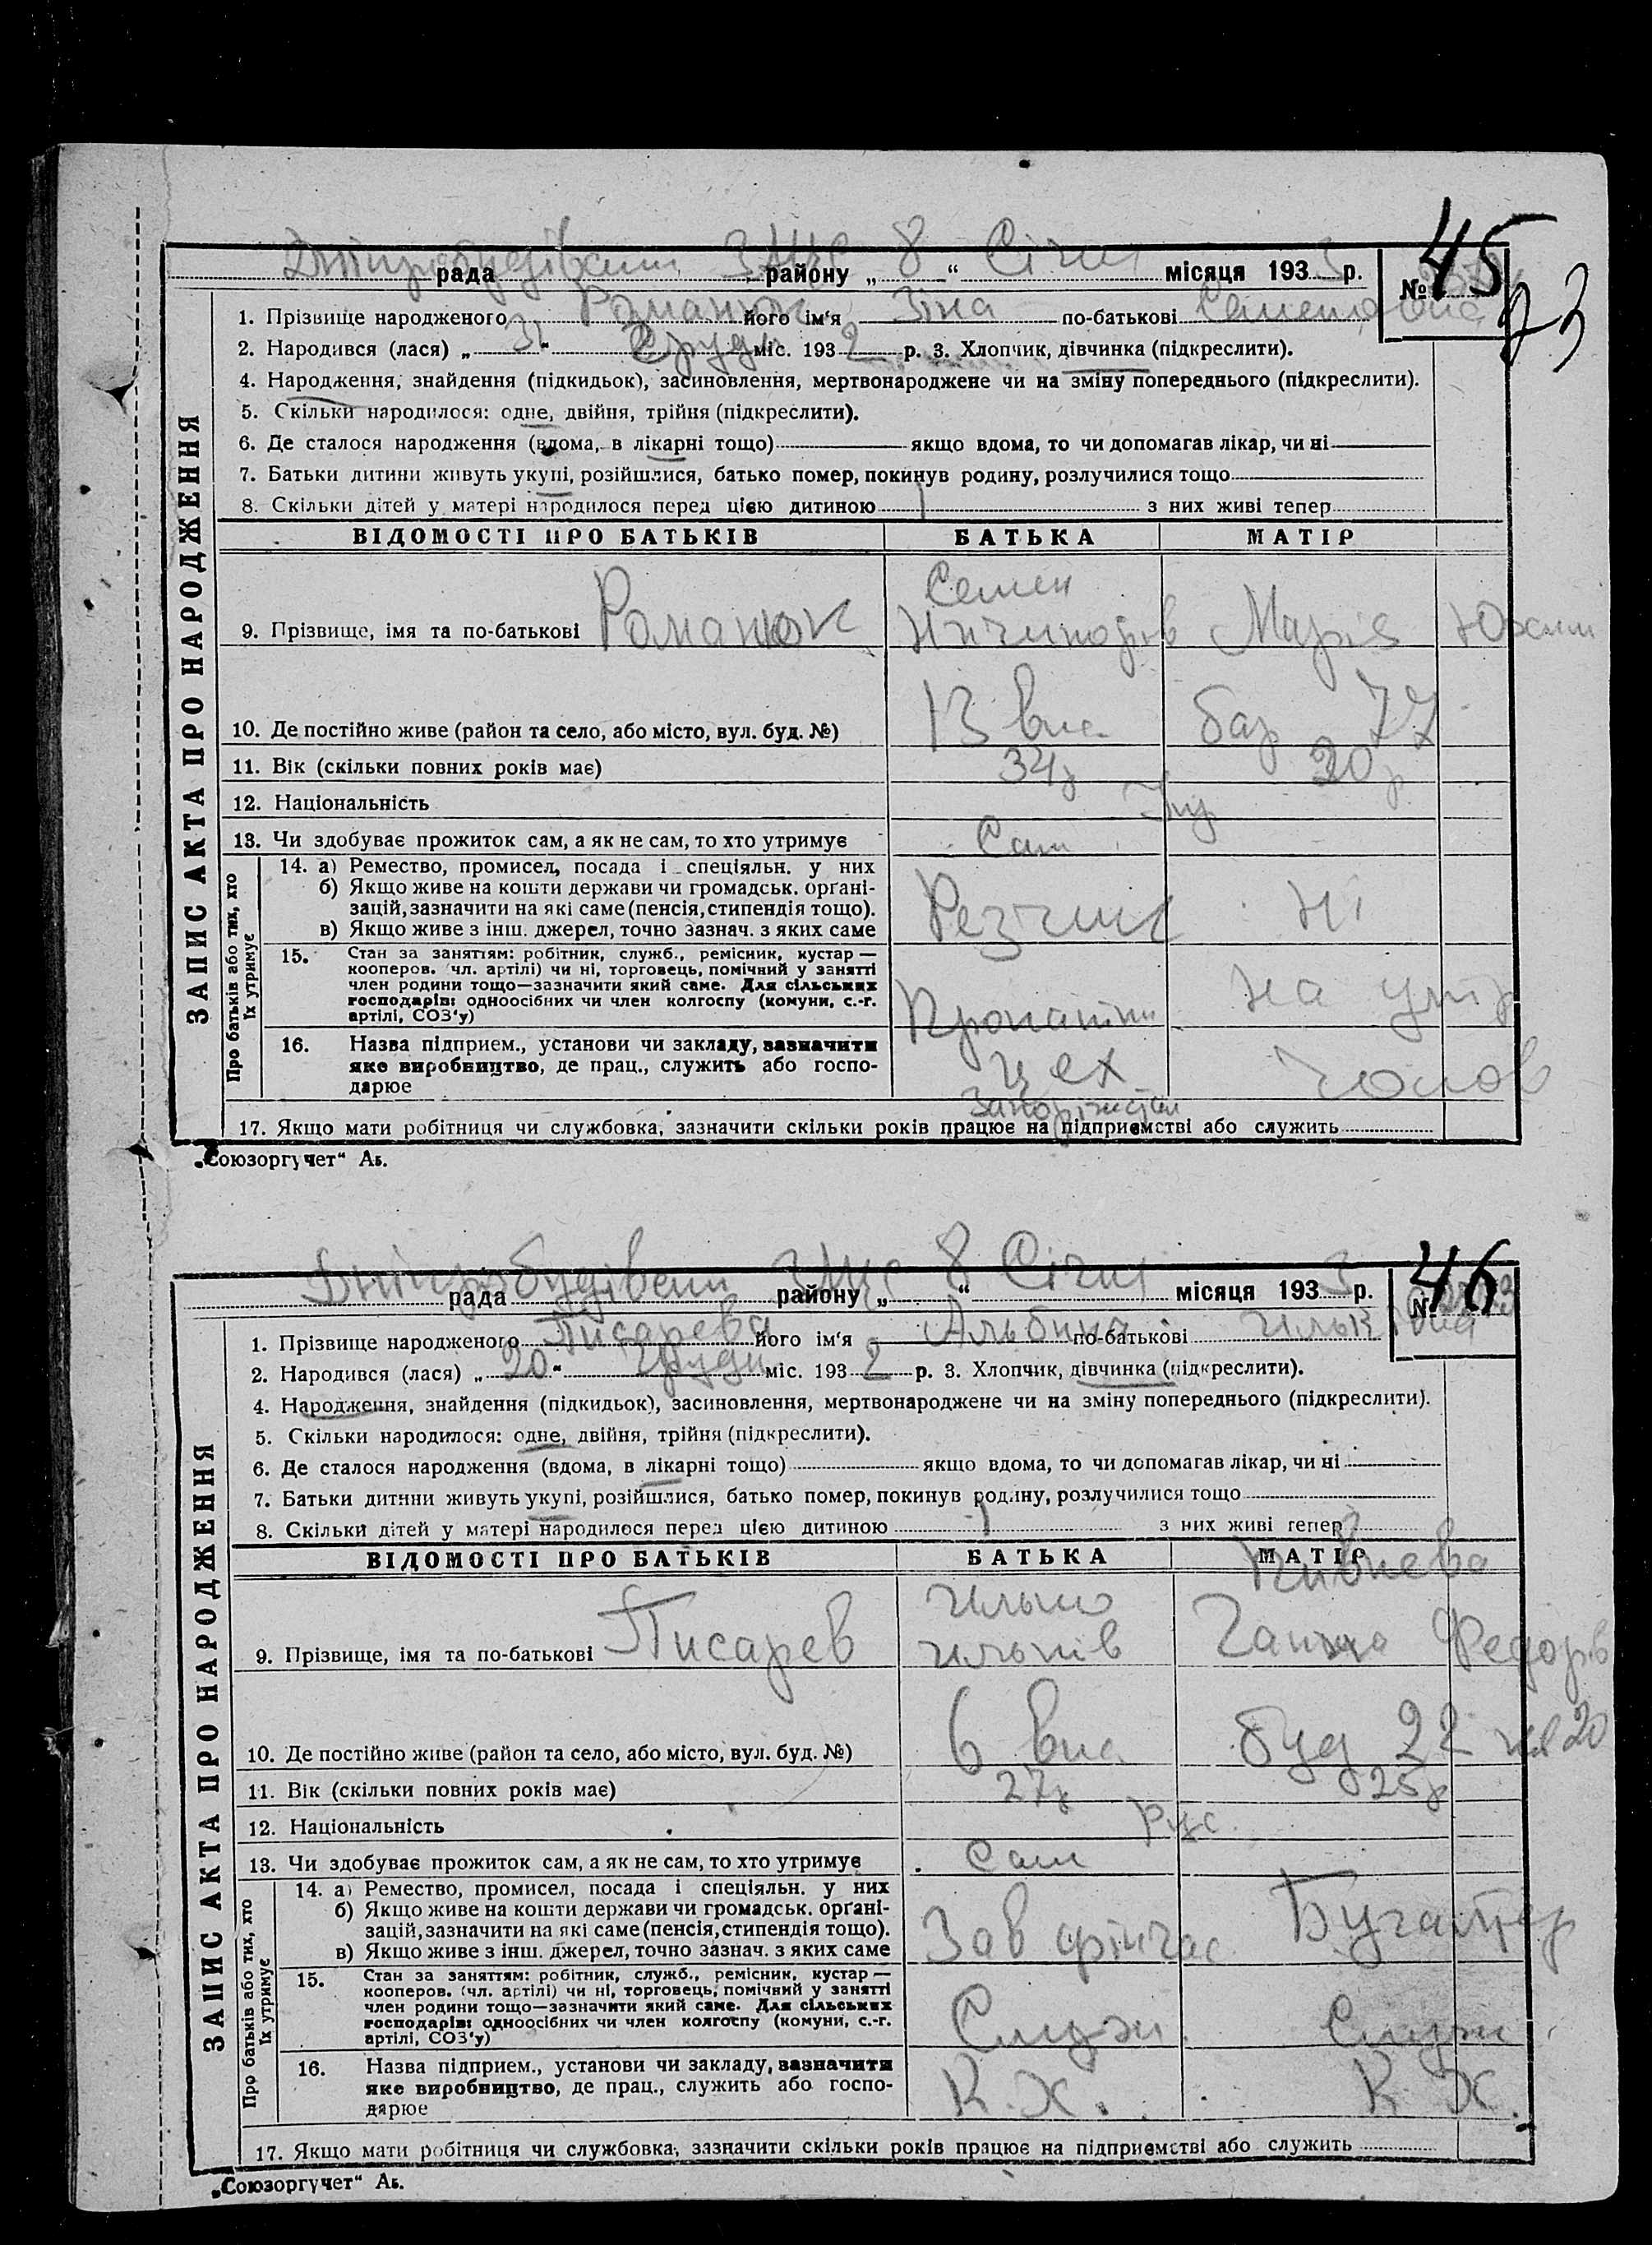 Дніпробудівськ ЗАГС 8 Січня
рада району „ “ місяця 193 3 р. № 45
73
1. Прізвище народженого Романюк його ім‘я Зіна по-батькові Семенівна
2. Народився (лася) „ 31 “ Грудн міс. 193 2 р. 3. Хлопчик, дівчинка (підкреслити).
4. Народження, знайдення (підкидьок), засиновлення, мертвонароджене чи на зміну попереднього (підкреслити).
5. Скільки народилося: одне, двійня, трійня (підкреслити).
6. Де сталося народження (вдома, в лікарні тощо) якщо вдома, то чи допомагав лікар, чи ні
7. Батьки дитини живуть укупі, розійшлися, батько помер, покинув родину, розлучилися тощо
8. Скільки дітей у матері народилося перед цією дитиною 1 з них живі тепер
ЗАПИС АКТА ПРО НАРОДЖЕННЯ
ВІДОМОСТІ ПРО БАТЬКІВ БАТЬКА МАТІР
9. Прізвище, імя та по-батькові Романюк Семен Ничипорів Марія Юхим
10. Де постійно живе (район та село, або місто, вул. буд. №) 13 вис. бар 77
11. Вік (скільки повних років має) 34р 20р
12. Національність Укр
13. Чи здобуває прожиток сам, а як не сам, то хто утримує Сам
Про батьків або тих, хто їх утримує
14. а) Ремество, промисел, посада і спеціяльн. у них
б) Якщо живе на кошти держави чи громадськ. орґані-
зацій, зазначити на які саме (пенсія, стипендія тощо).
в) Якщо живе з інш. джерел, точно зазнач. з яких саме
Резчик Ні
15. Стан за заняттям: робітник, служб., ремісник, кустар —
кооперов. (чл. артілі) чи ні, торговець, помічний у занятті
член родини тощо—зазначити який саме. Для сільських
господарів: одноосібних чи член колгоспу (комуни, с.-г.
артілі, СОЗ‘у)
на утр
16. Назва підприєм., установи чи закладу, зазначити
яке виробництво, де прац., служить або госпо-
дарює
цех чолов
17. Якщо мати робітниця чи службовка, зазначити скільки років працює на підприємстві або служить
„Союзоргучет“ Аб.
Дніпробудівськ ЗАГС 8 Січня
рада району „ “ місяця 193 3 р. № 46
1. Прізвище народженого Писарева його ім‘я Альбина по-батькові Ильківна
2. Народився (лася) „ 20 “ Грудн міс. 193 2 р. 3. Хлопчик, дівчинка (підкреслити).
4. Народження, знайдення (підкидьок), засиновлення, мертвонароджене чи на зміну попереднього (підкреслити).
5. Скільки народилося: одне, двійня, трійня (підкреслити).
6. Де сталося народження (вдома, в лікарні тощо) якщо вдома, то чи допомагав лікар, чи ні
7. Батьки дитини живуть укупі, розійшлися, батько помер, покинув родину, розлучилися тощо
8. Скільки дітей у матері народилося перед цією дитиною 1 з них живі тепер
ЗАПИС АКТА ПРО НАРОДЖЕННЯ
ВІДОМОСТІ ПРО БАТЬКІВ БАТЬКА МАТІР
9. Прізвище, імя та по-батькові Писарев Илько Ильків Ганна Федорів
10. Де постійно живе (район та село, або місто, вул. буд. №) 6 вис буд 22 кв 20
11. Вік (скільки повних років має) 27р 25р
12. Національність Рус.
13. Чи здобуває прожиток сам, а як не сам, то хто утримує Сам
Про батьків або тих, хто їх утримує
14. а) Ремество, промисел, посада і спеціяльн. у них
б) Якщо живе на кошти держави чи громадськ. орґані-
зацій, зазначити на які саме (пенсія, стипендія тощо).
в) Якщо живе з інш. джерел, точно зазнач. з яких саме
Зав фінчас Бугалтер
15. Стан за заняттям: робітник, служб., ремісник, кустар —
кооперов. (чл. артілі) чи ні, торговець, помічний у занятті
член родини тощо—зазначити який саме. Для сільських
господарів: одноосібних чи член колгоспу (комуни, с.-г.
артілі, СОЗ‘у)
Служ. Служ
16. Назва підприєм., установи чи закладу, зазначити
яке виробництво, де прац., служить або госпо-
дарює
К. Х. К. Х.
17. Якщо мати робітниця чи службовка, зазначити скільки років працює на підприємстві або служить
„Союзоргучет“ Аб.